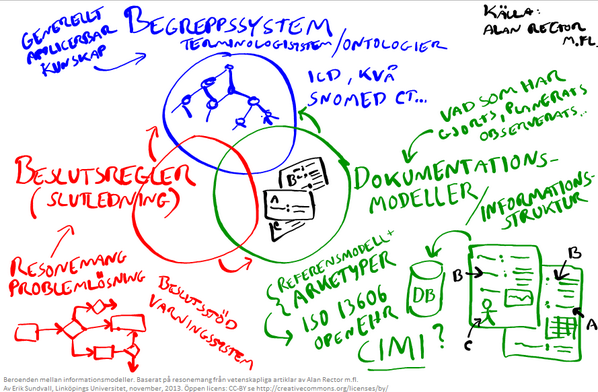 GENERELLT
APPLICERBAR
KUNSKAP
BEGREPPSSYSTEM
TERMINOLOGISYSTEM/ONTOLOGIER
KÄLLA:
ALAN RECTOR
M.FL.
ICD, KVÅ
SNOMED CT...
VAD SOM HAR
GJORTS, PLANERATS
OBSERVERATS..
BESLUTSREGLER
(SLUTLEDNING)
B
A
C
DOKUMENTATIONS-
MODELLER
/INFORMATIONS-
STRUKTUR
RESONEMANG
PROBLEMLÖSNING
BESLUTSSTÖD
VARNINGSSYSTEM
REFERENSMODELL+
ARKETYPER
ISO 13606
OPENEHR
CIMI?
DB
B
B
A
C
Beroenden mellan informationsmodeller. Baserat på resonemang från vetenskapliga artiklar av Alan Rector m.fl.
Av Erik Sundvall, Linköpings Universitet, november, 2013. Öppen licens: CC-BY se http://creativecommons.org/licenses/by/